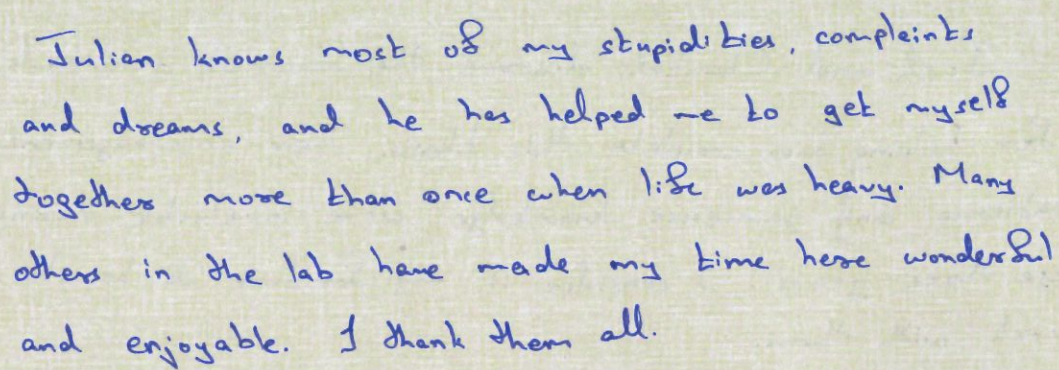 Julian knows most of my stupidities, complaints
and dreams, and he has helped me to get myself
together more than once when life was heavy. Many
others in the lab have made my time here wonderful
and enjoyable. I thank them all.